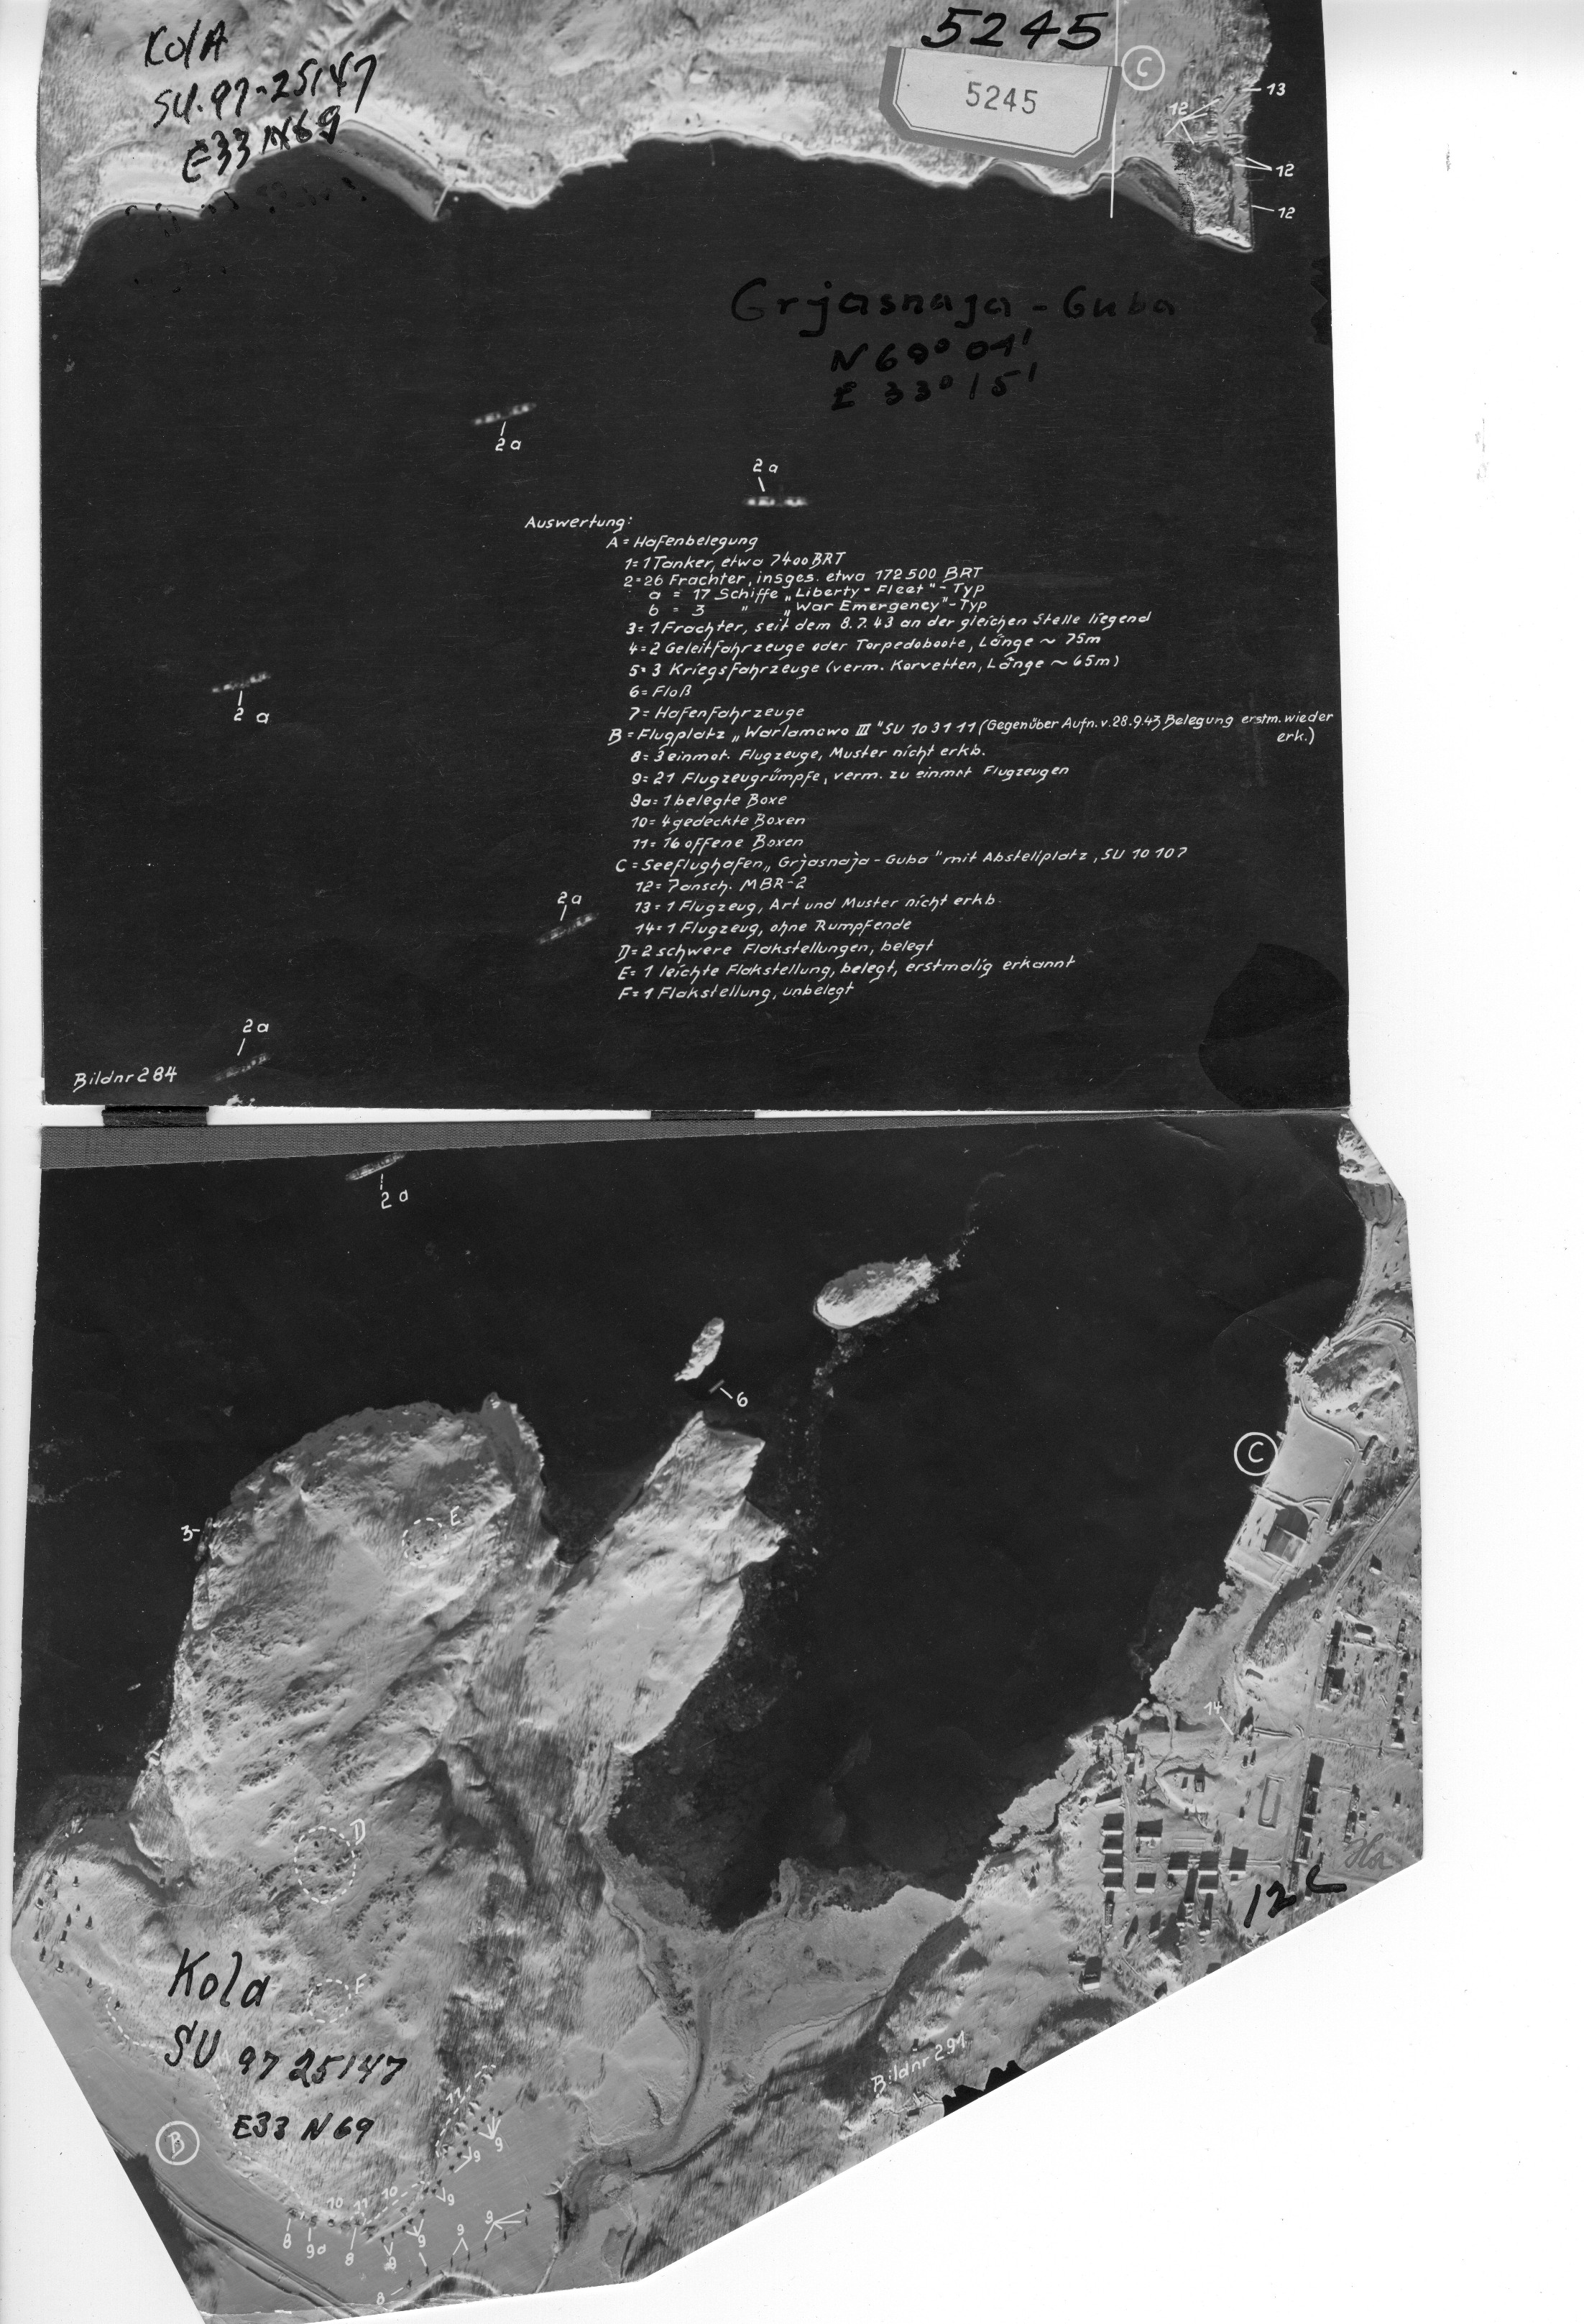 Kola
SU-97-25147
E33 N69
5245
5245
C
13
12
12
12
Grjasnaja-Guba
N 69° 04'
E 33° 15'
2a
2a
Auswertung:
A = Hafenbelegung
1 = 1 Tanker, etwa 7400 BRT
2 = 26 Frachter, insges. etwa 172500 BRT
a = 17 Schiffe „Liberty-Fleet"-Typ
b = 3 " „War Emergency"-Typ
3 = 1 Frachter, seit dem 8.7.43 an der gleichen Stelle liegend
4 = 2 Geleitfahrzeuge oder Torpedoboote, Länge ~ 75m
5 = 3 Kriegsfahrzeuge (verm. Korvetten, Länge ~ 65m)
6 = Floß
7 = Hafenfahrzeuge
B = Flugplatz „Warlamowo III" SU 10 31 11 (Gegenüber Aufn. v. 28.9.43 Belegung erstm. wieder
erk.)
8 = 3 einmot. Flugzeuge, Muster nicht erkb.
9 = 21 Flugzeugrümpfe, verm. zu einmot Flugzeugen
9a = 1 belegte Boxe
10 = 4 gedeckte Boxen
11 = 16 offene Boxen
C = Seeflughafen „Grjasnaja-Guba" mit Abstellplatz, SU 10 107
12 = 7 ansch. MBR-2
13 = 1 Flugzeug, Art und Muster nicht erkb.
14 = 1 Flugzeug, ohne Rumpfende
D = 2 schwere Flakstellungen, belegt
E = 1 leichte Flakstellung, belegt, erstmalig erkannt
F = 1 Flakstellung, unbelegt
2a
2a
2a
Bildnr 284
2a
6
C
3
E
14
D
12 C
F
Kola
SU 97 25147
E33 N69
Bildnr 291
B
11
9
9
9
10
11
10
8
9a
8
9
9
9
9
8